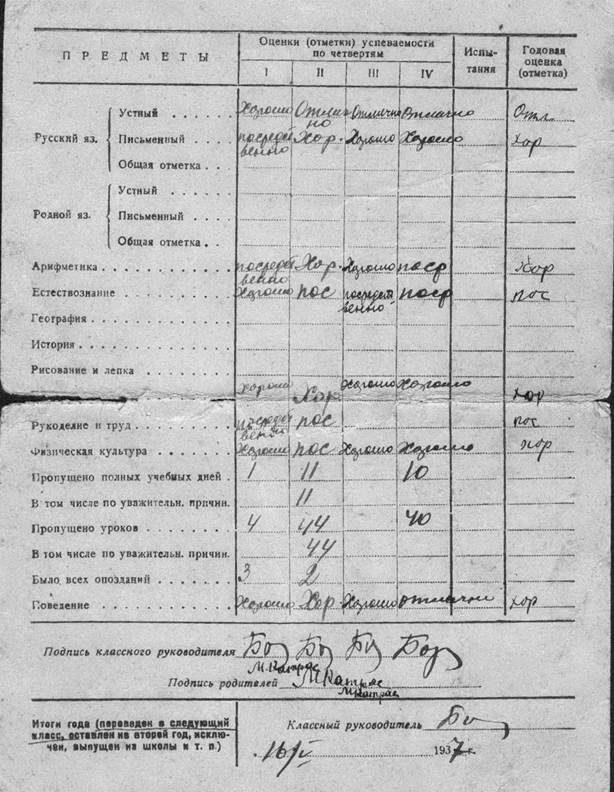 ПРЕДМЕТЫ
Оценки (отметки) успеваемости по четвертям
I II III IV
Испытания
Годовая оценка (отметка)
Русский яз.
Устный . . . . . Хорошо Отлично Отлично Отлично Отл.
Письменный . . . . посредственно Хор. Хорошо Хорошо Хор
Общая отметка . . .
Родной яз.
Устный . . . . . .
Письменный . . . .
Общая отметка . .
Арифметика . . . . . . . . . . посредственно Хор. Хорошо поср Хор
Естествознание . . . . . . . . . Хорошо пос посредственно поср пос
География . . . . . . . . . . .
История . . . . . . . . . . . .
Рисование и лепка . . . . . . . Хорошо Хор Хорошо Хорошо Хор
Рукоделие и труд . . . . . . . . посредственно пос пос
Физическая культура . . . . . . Хорошо пос Хорошо Хорошо хор
Пропущено полных учебных дней . 1 11 10
В том числе по уважительн. причин. 11
Пропущено уроков . . . . . . . . 4 44 40
В том числе по уважительн. причин. 44
Было всех опозданий . . . . . . 3 2
Поведение . . . . . . . . . . . Хорошо Хор Хорошо отлично Хор
Подпись классного руководителя
Подпись родителей
Итоги года (переведен в следующий класс, оставлен на второй год, исключен, выпущен из школы и т. п.)
Классный руководитель
16/V 1937